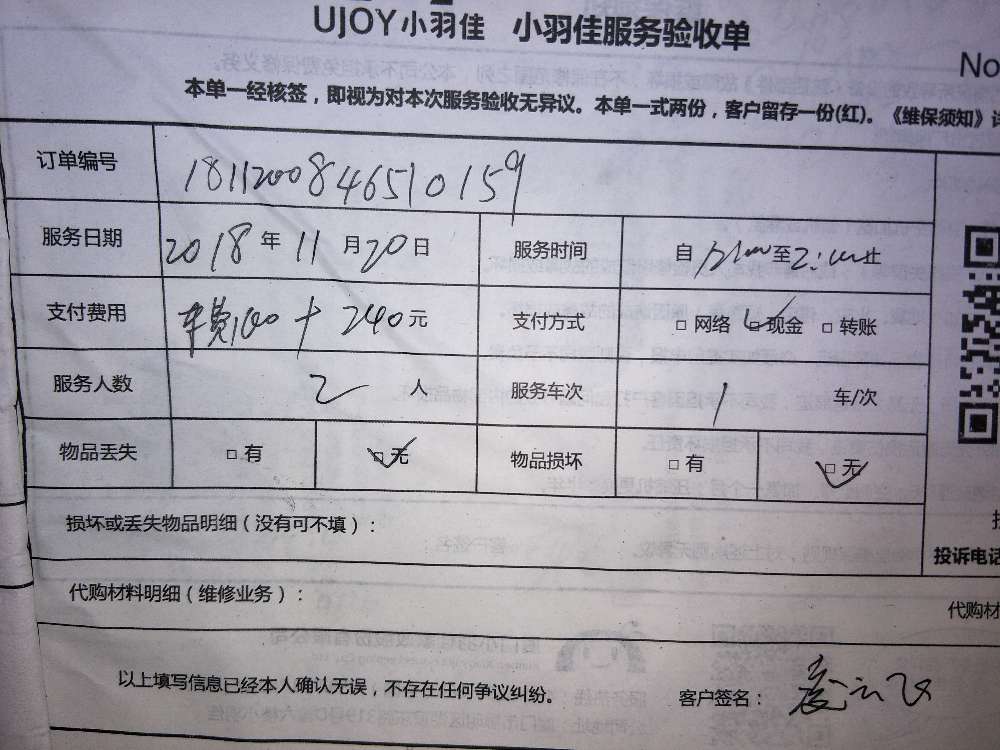 UJOY小羽佳 小羽佳服务验收单
No
本单一经核签，即视为对本次服务验收无异议。本单一式两份，客户留存一份(红)。《维保须知》详
订单编号 1811200846510159
服务日期 2018年11月20日 服务时间 自 至 止
支付费用 车费100+240元 支付方式 □网络 ☑现金 □转账
服务人数 2人 服务车次 1 车/次
物品丢失 □有 ☑无 物品损坏 □有 ☑无
损坏或丢失物品明细（没有可不填）：
投诉电话
代购材料明细（维修业务）：
代购材
以上填写信息已经本人确认无误，不存在任何争议纠纷。 客户签名：